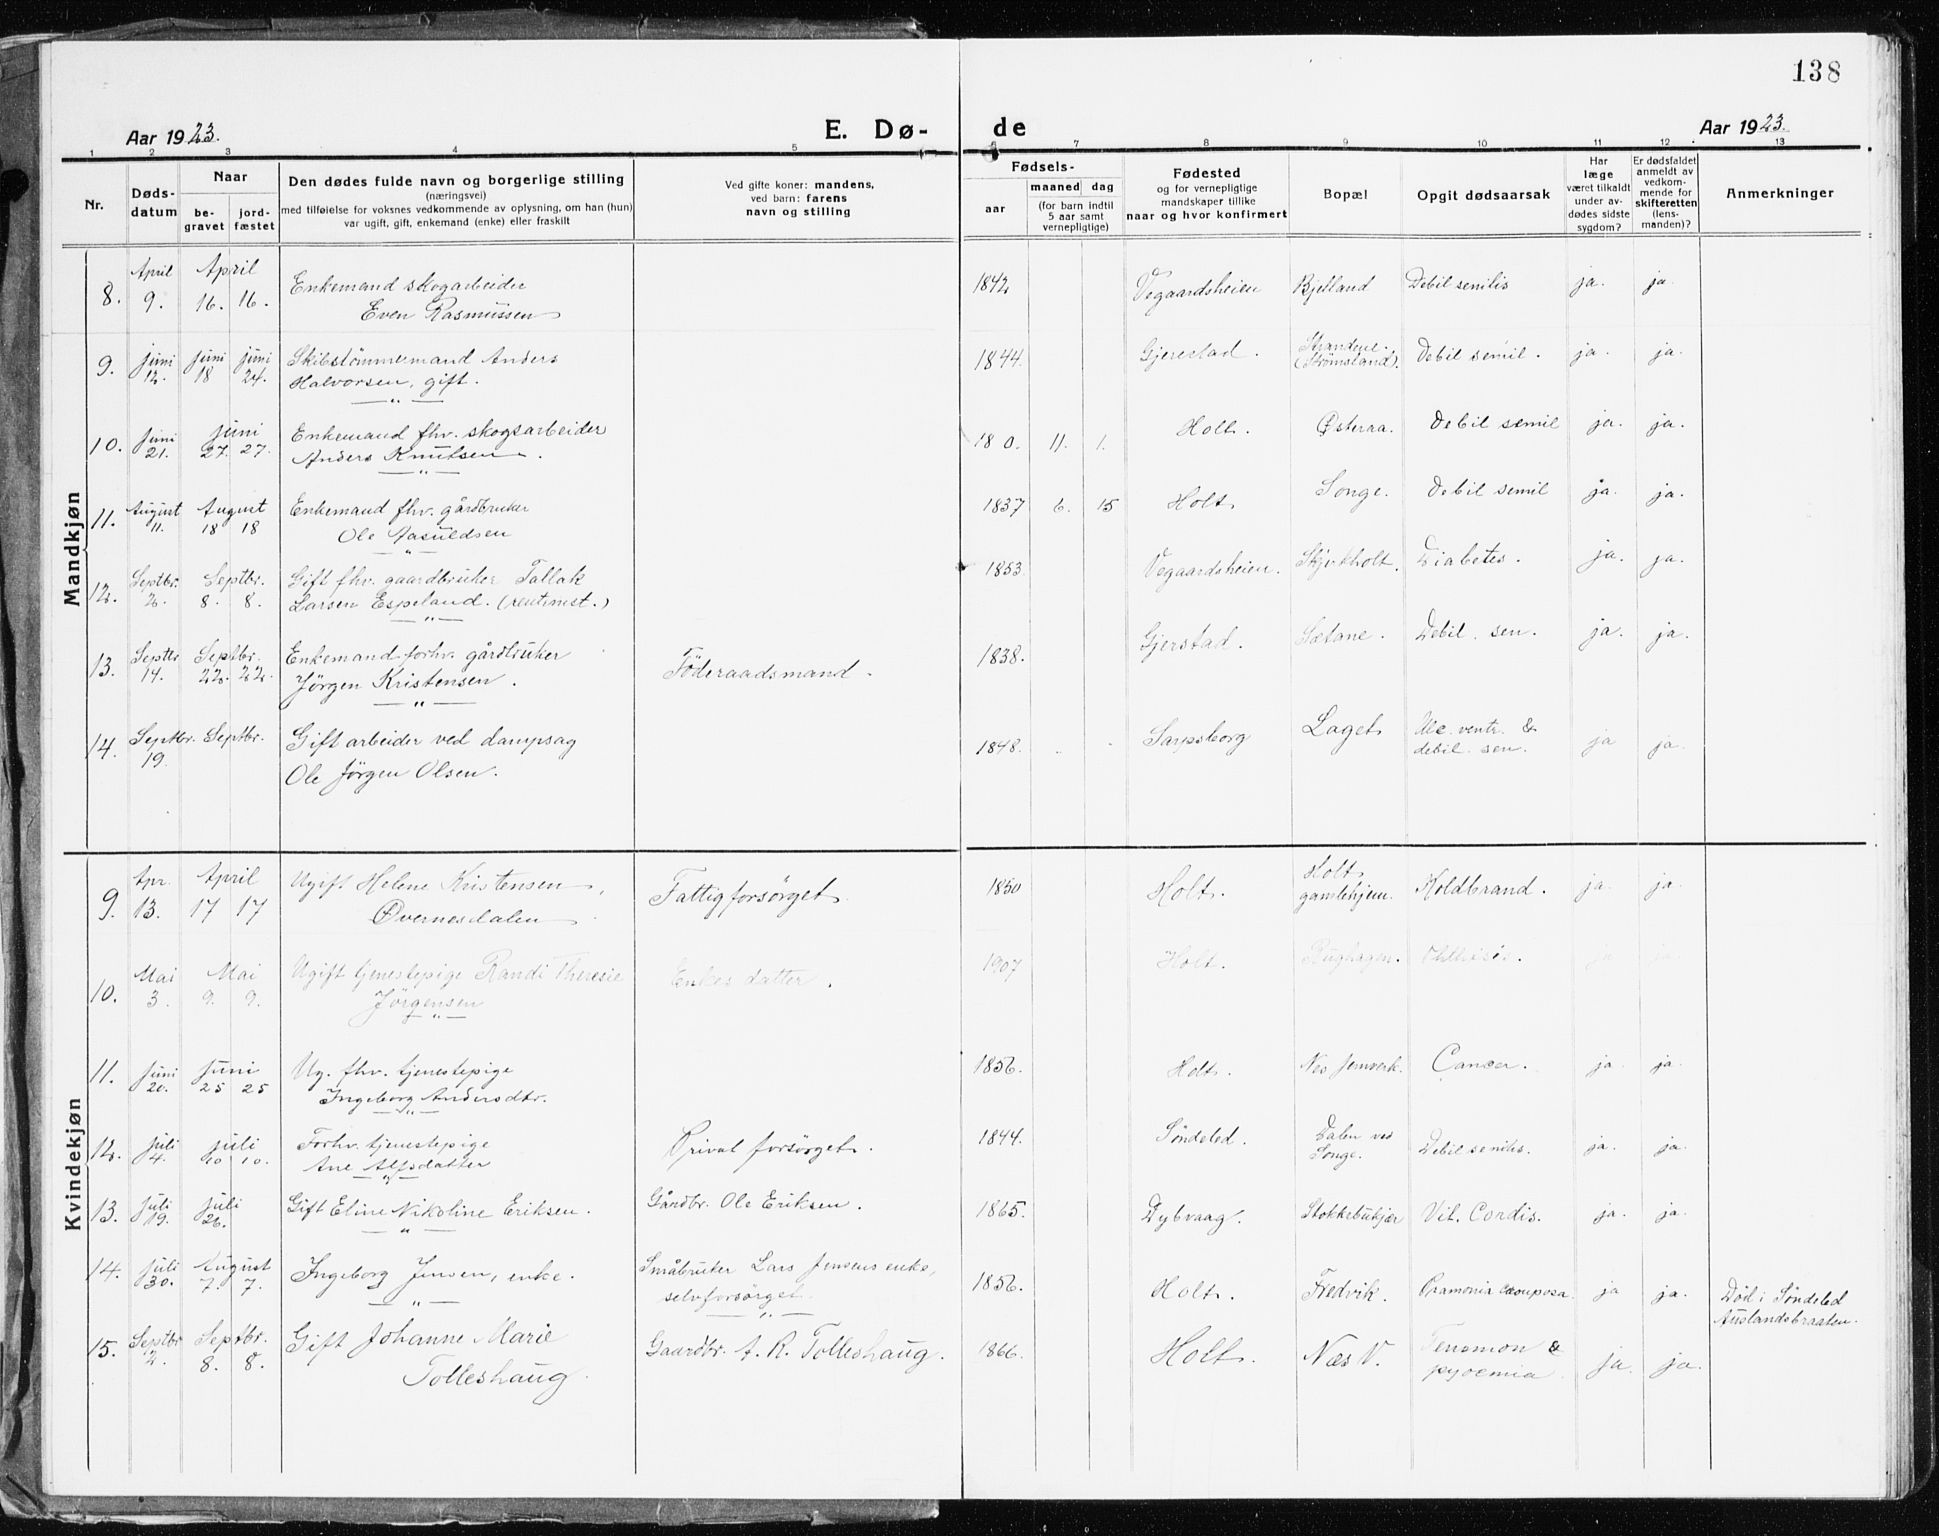 138
Aar 1923. E. Dø- de Aar 1923.
1 2 3 4 5 6 7 8 9 10 11 12 13
Nr.
Døds-
datum
Naar
be-
gravet
jord-
fæstet
Den dødes fulde navn og borgerlige stilling
(næringsvei)
med tilføielse for voksnes vedkommende av oplysning, om han (hun)
var ugift, gift, enkemand (enke) eller fraskilt
Ved gifte koner: mandens,
ved barn: farens
navn og stilling
Fødsels-
aar
maaned dag
(for barn indtil
5 aar samt
vernepligtige)
Fødested
og for vernepligtige
mandskaper tillike
naar og hvor konfirmert
Bopæl
Opgit dødsaarsak
Har
læge
været tilkaldt
under av-
dødes sidste
sygdom?
Er dødsfaldet
anmeldt av
vedkom-
mende for
skifteretten
(lens-
manden)?
Anmerkninger
Mandkjøn
April April
8. 9. 16. 16. Enkemand skogarbeider
Even Rasmussen
1842 Vegaardsheien Bjelland Debil senilis ja. ja.
9. Juni 12. Juni 18 Juni 24. Skibstømmermand Anders
Halvorsen, gift.
1844. Gjerestad. Strandene.
(Strømsland). Debil semil. ja. ja.
10. Juni 21. Juni 27. 27. Enkemand fhv. skogsarbeider
Anders Knutsen.
18 0. 11. 1. Holt. Østeraa. Debil semil ja. ja.
11. August 11. August 18 18 Enkemand fhv. gårdbruker
Ole Aasuldsen
1837 6. 15 Holt. Songe. Debil semil ja. ja.
12. Septbr. 2. Septbr. 8. 8. Gift fhv. gaardbruker Tallak
Larsen Espeland. (rentenist.)
1853 Vegaardsheien. Skjerkholt. Diabetes. ja. ja.
13. Septbr 14. Septbr. 22. 22. Enkemand forhv. gårdbruker
Jørgen Kristensen.
Föderaadsmand.
1838. Gjerstad. Sætane. Debil. sen. ja. ja.
14. Septbr. 19. Septbr. Gift arbeider ved dampsag
Ole Jørgen Olsen.
1848. Sarpsborg Laget Ulc. ventr. &
debil. sen. ja ja.
Kvindekjøn
9. Apr. 13. April 17 17 Ugift Helene Kristensen,
Øvernesdalen
Fattigforsørget.
1850 Holt. Holt
gamlehjem. Koldbrand. ja. ja.
10. Mai 3. Mai 9. 9. Ugift tjenestepige Randi Theresie
Jørgensen
Enkes datter.
1907 Holt. Rughagen. Phthisis. ja ja.
11. Juni 20. Juni 25 25 Ug. fhv. tjenestepige
Ingeborg Andersdtr.
1856. Holt. Nes Jernverk. Cancer. ja. ja.
12. Juli 4. Juli 10 10. Forhv. tjenestepige
Ane Alfsdatter
Privat forsørget.
1844. Søndeled. Dalen ved
Songe. Debil senilis. ja. ja.
13. Juli 19. Juli 26. Gift Eline Nikoline Eriksen.
Gårdbr. Ole Eriksen.
1865. Dybvaag. Stokkebukjær Vit. Cordis. ja. ja.
14. Juli 30. August 7. 7. Ingeborg Jensen, enke.
Småbruker Lars Jensens enke,
selvforsørget.
1856. Holt. Fredvik. ja ja. Død i Søndeled
Auslandsbraaten.
15. Septbr 2. Septbr. 8. 8. Gift Johanne Marie
Tolleshaug
Gaardbr. A. R. Tolleshaug.
1866. Holt. Næs V. &
pyoemia ja. ja.